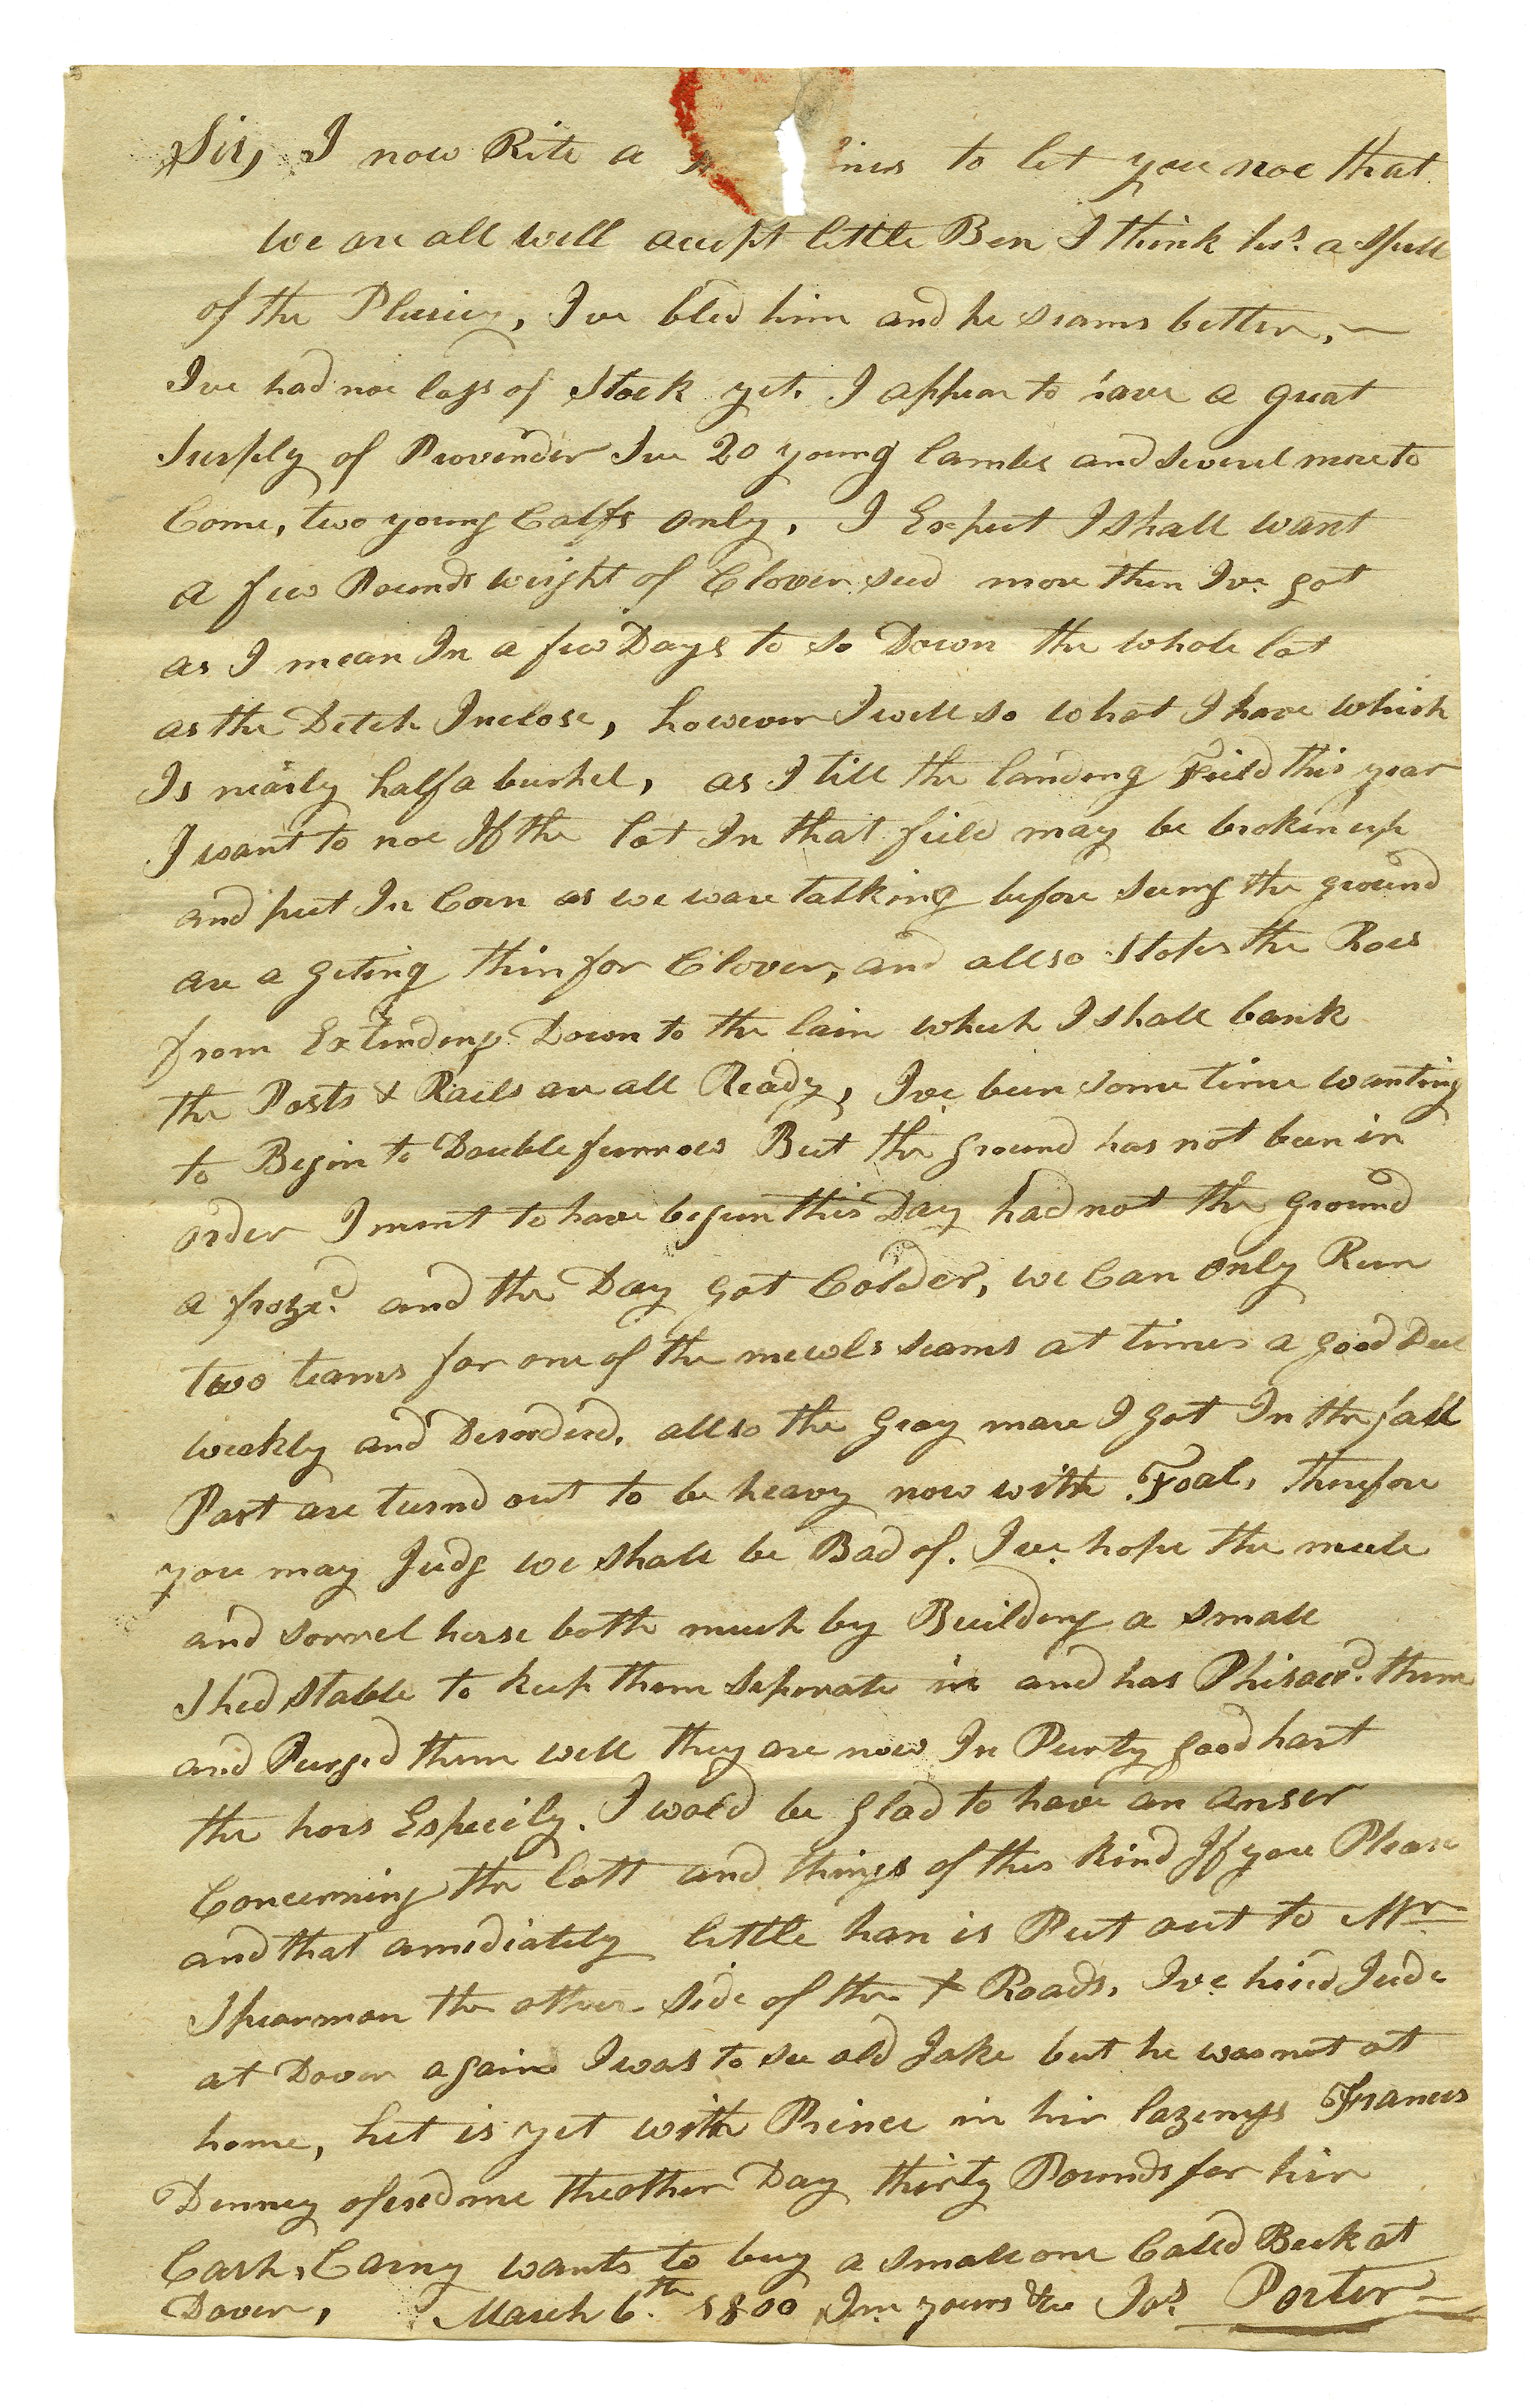 Sir, I now Rite a lines to let you noe that
We are all well accept little Ben I think hes. a Spell
of the Pluricy, Ive bled him and he seams better. —
Ive had noe loss of Stock yet. I appear to have a great
Surply of Provinder Ive 20 young lambs and severel more to
Come, two young Calfs only, I Expect I shall want
a few Pounds weight of Clover seed more then Ive. got
as I mean In a few Days to so Down the whole lot
as the Detch Inclose, however I will so what I have which
Is nearly half a bushel, as I till the landing Feild this year
I want to noe If the lot In that feild may be broken up
and put In Corn as we ware talking before seeing the ground
are a geting thin for Clover, and allso Stops the Roes
from Extending Down to the lain which I shall bank
the Posts & Rails are all Ready, Ive been some time wanting
to Begin to Double furrow But the ground has not been in
order I ment to have begun this Day had not the ground
a froze.d and the Day got Colder, we Can only Run
two teams for one of the mewls seams at times a good Deel
weakly and Desorderd, allso the Gray mare I got In the fall
Part are turnd out to be heavy now with Foal, therefore
you may Judg we shall be Bad of. Ive. hope the mule
and sorrel horse both much by Building a small
Shed stable to keep them seperate in and has Phisaced. them
and Purged them well they are now In Purty good hart
the hors Especily. I wold be glad to have an anser
Concerning the lott and things of this kind If you Please
and that amediately little han is Put out to Mr
Spearman the other side of the X Roads, Ive hired Jude
at Dover again I was to see old Jake but he was not at
home, het is yet with Prince in her lazenys Frances
Denney ofered me the other Day thirty Pounds for her
Cash, Carny wants to buy a small one Called Beck at
Dover, March 6.th 1800 Im yours &c Jos. Porter